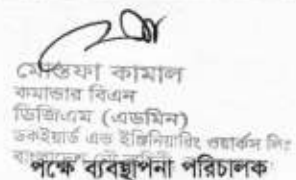 মোস্তফা কামাল
কমান্ডার বিএন
ডিজিএম (এডমিন)
ডকইয়ার্ড এন্ড ইঞ্জিনিয়ারিং ওয়ার্কস লিঃ
পক্ষে ব্যবস্থাপনা পরিচালক